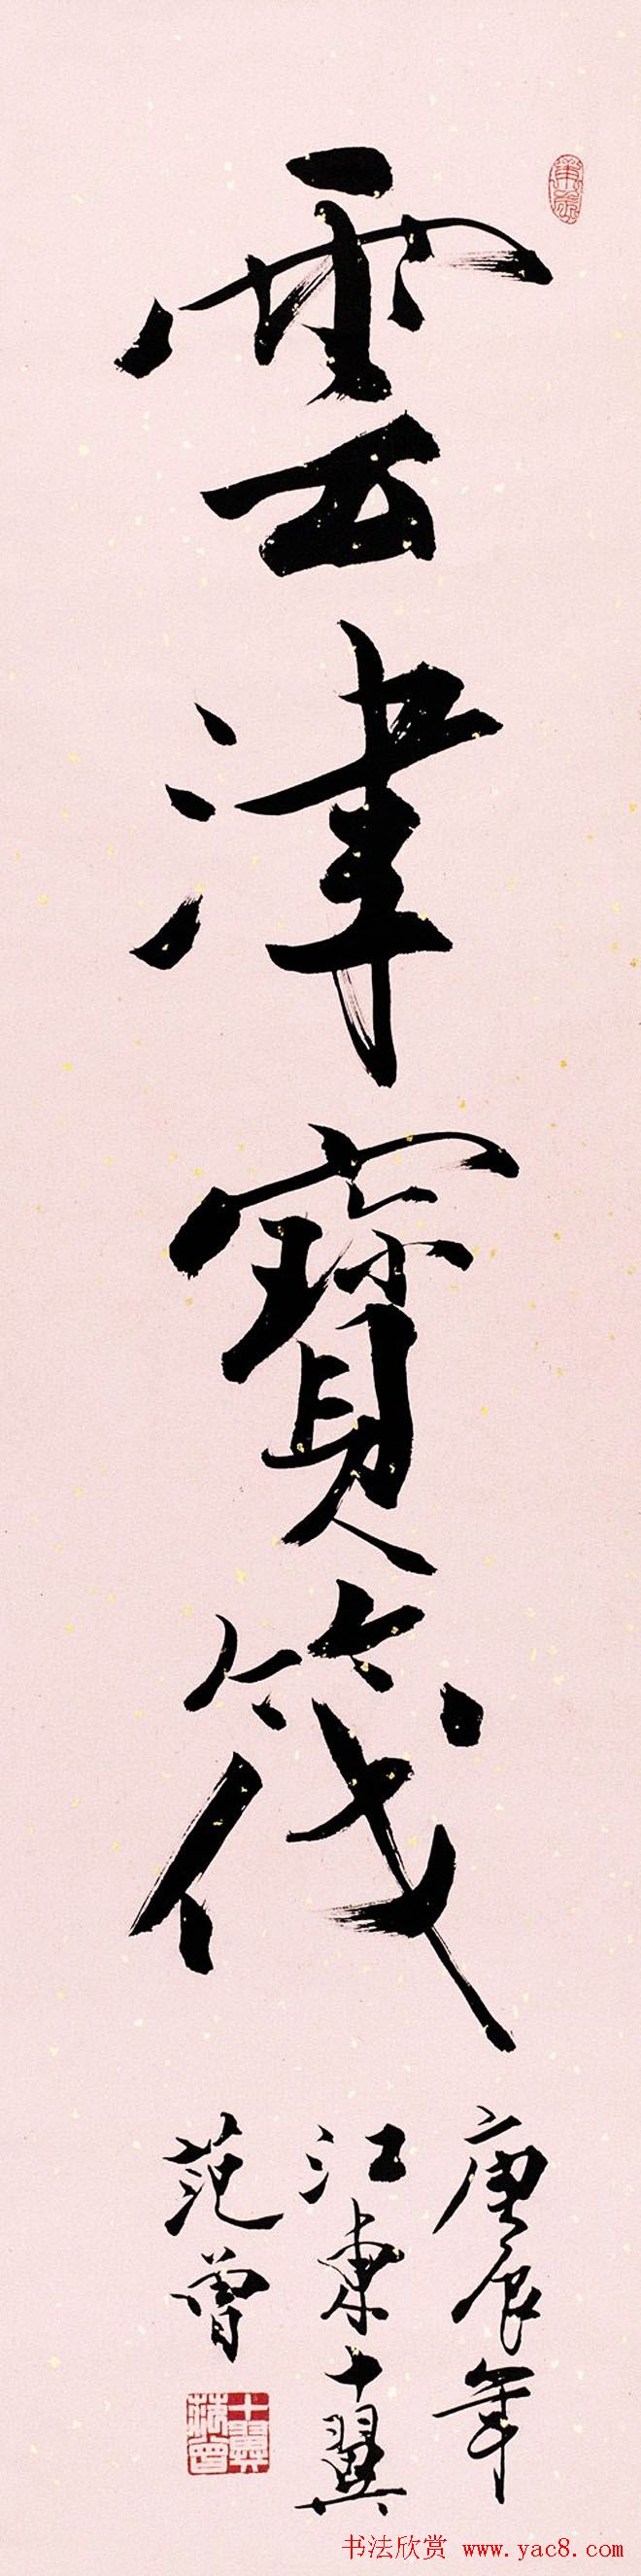 雲津寶筏
庚辰年
江東十翼
范曾
十翼
范曾
书法欣赏 www.yac8.com